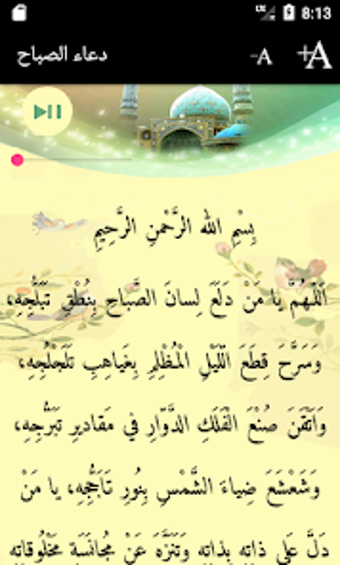 8:13
دعاء الصباح
-A
+A
بِسْمِ اللهِ الرَّحْمنِ الرَّحِيمِ
اَللّهُمَّ يا مَنْ دَلَعَ لِسانَ الصَّباحِ بِنُطْقِ تَبَلُّجِهِ،
وَسَرَّحَ قِطَعَ اللَّيْلِ الْمُظْلِمِ بِغَياهِبِ تَلَجْلُجِهِ،
وَاَتْقَنَ صُنْعَ الْفَلَكِ الدَّوّارِ في مَقاديرِ تَبَرُّجِهِ،
وَشَعْشَعَ ضِياءَ الشَّمْسِ بِنُورِ تَاَجُّجِهِ، يا مَنْ
دَلَّ عَلى ذاتِهِ بِذاتِهِ وَتَنَزَّهَ عَنْ مُجانَسَةِ مَخْلُوقاتِهِ